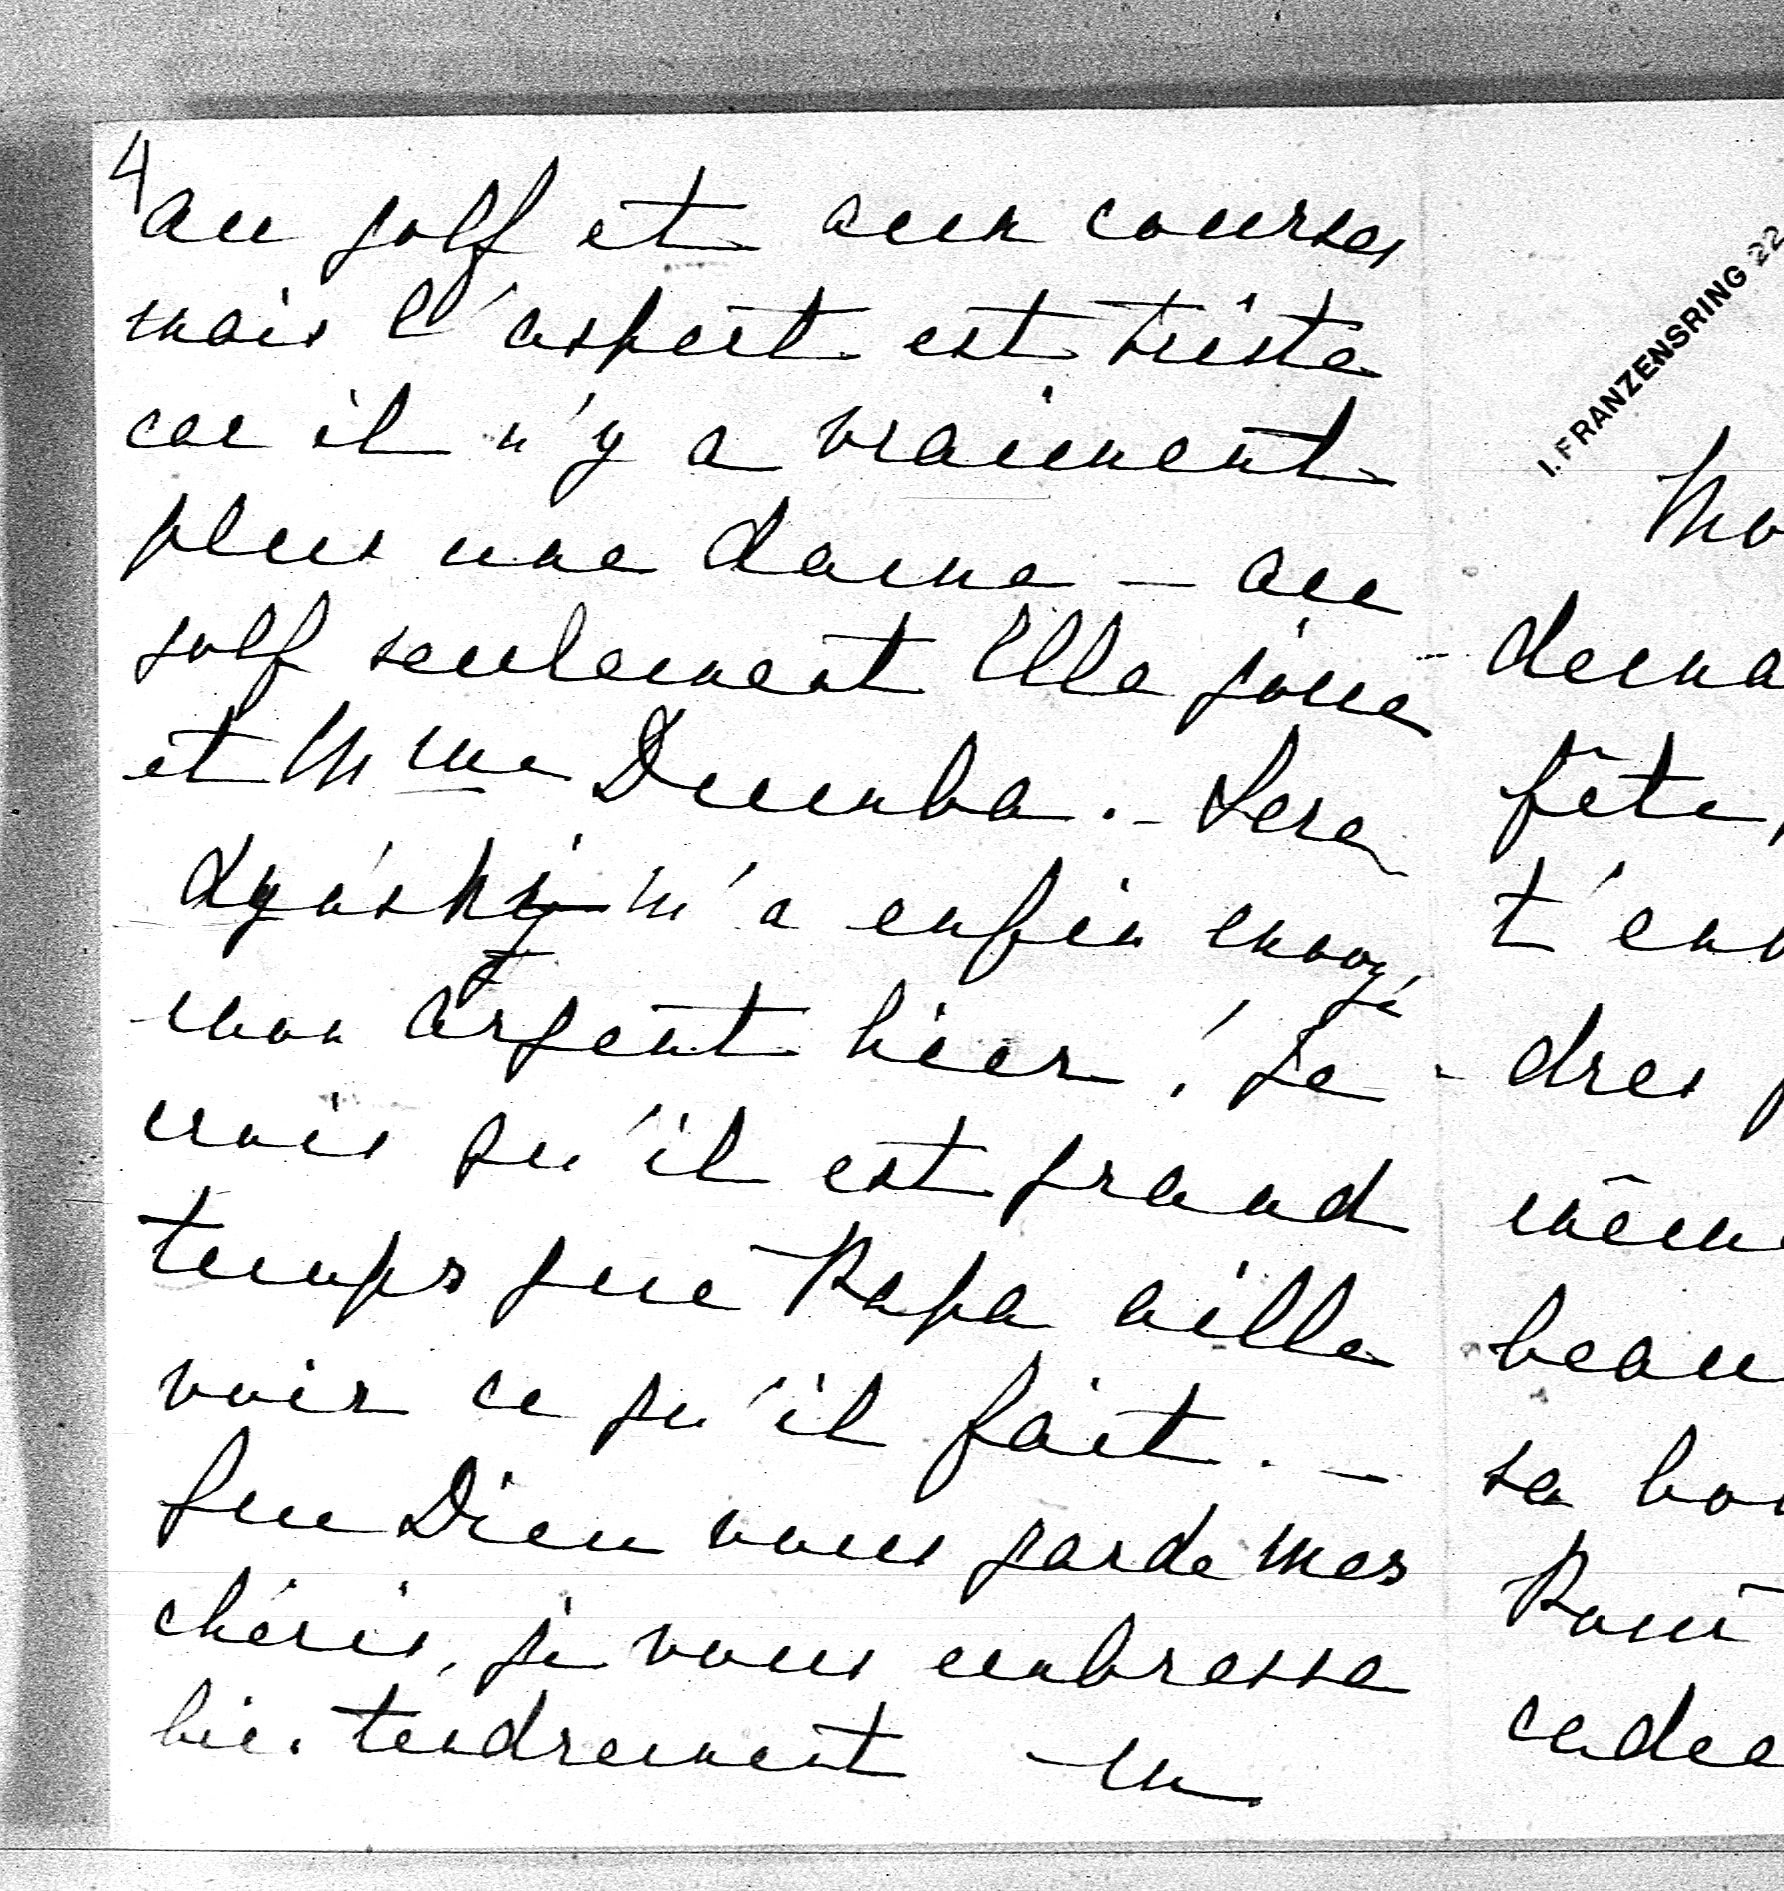 4
au golf et aux courses
mais l'aspect est triste
car il n'y a vraiment
plus une dame — au
golf seulement Ella joue
et Mme Dumba. — Sere
dynski m'a enfin envoyé
mon argent hier! Je
crois qu'il est grand
temps que Papa aille
voir ce qu'il fait. —
Que Dieu vous garde mes
chéris, je vous embrasse
bien tendrement
I. FRANZENSRING 22
fête,
dres
beau
sa